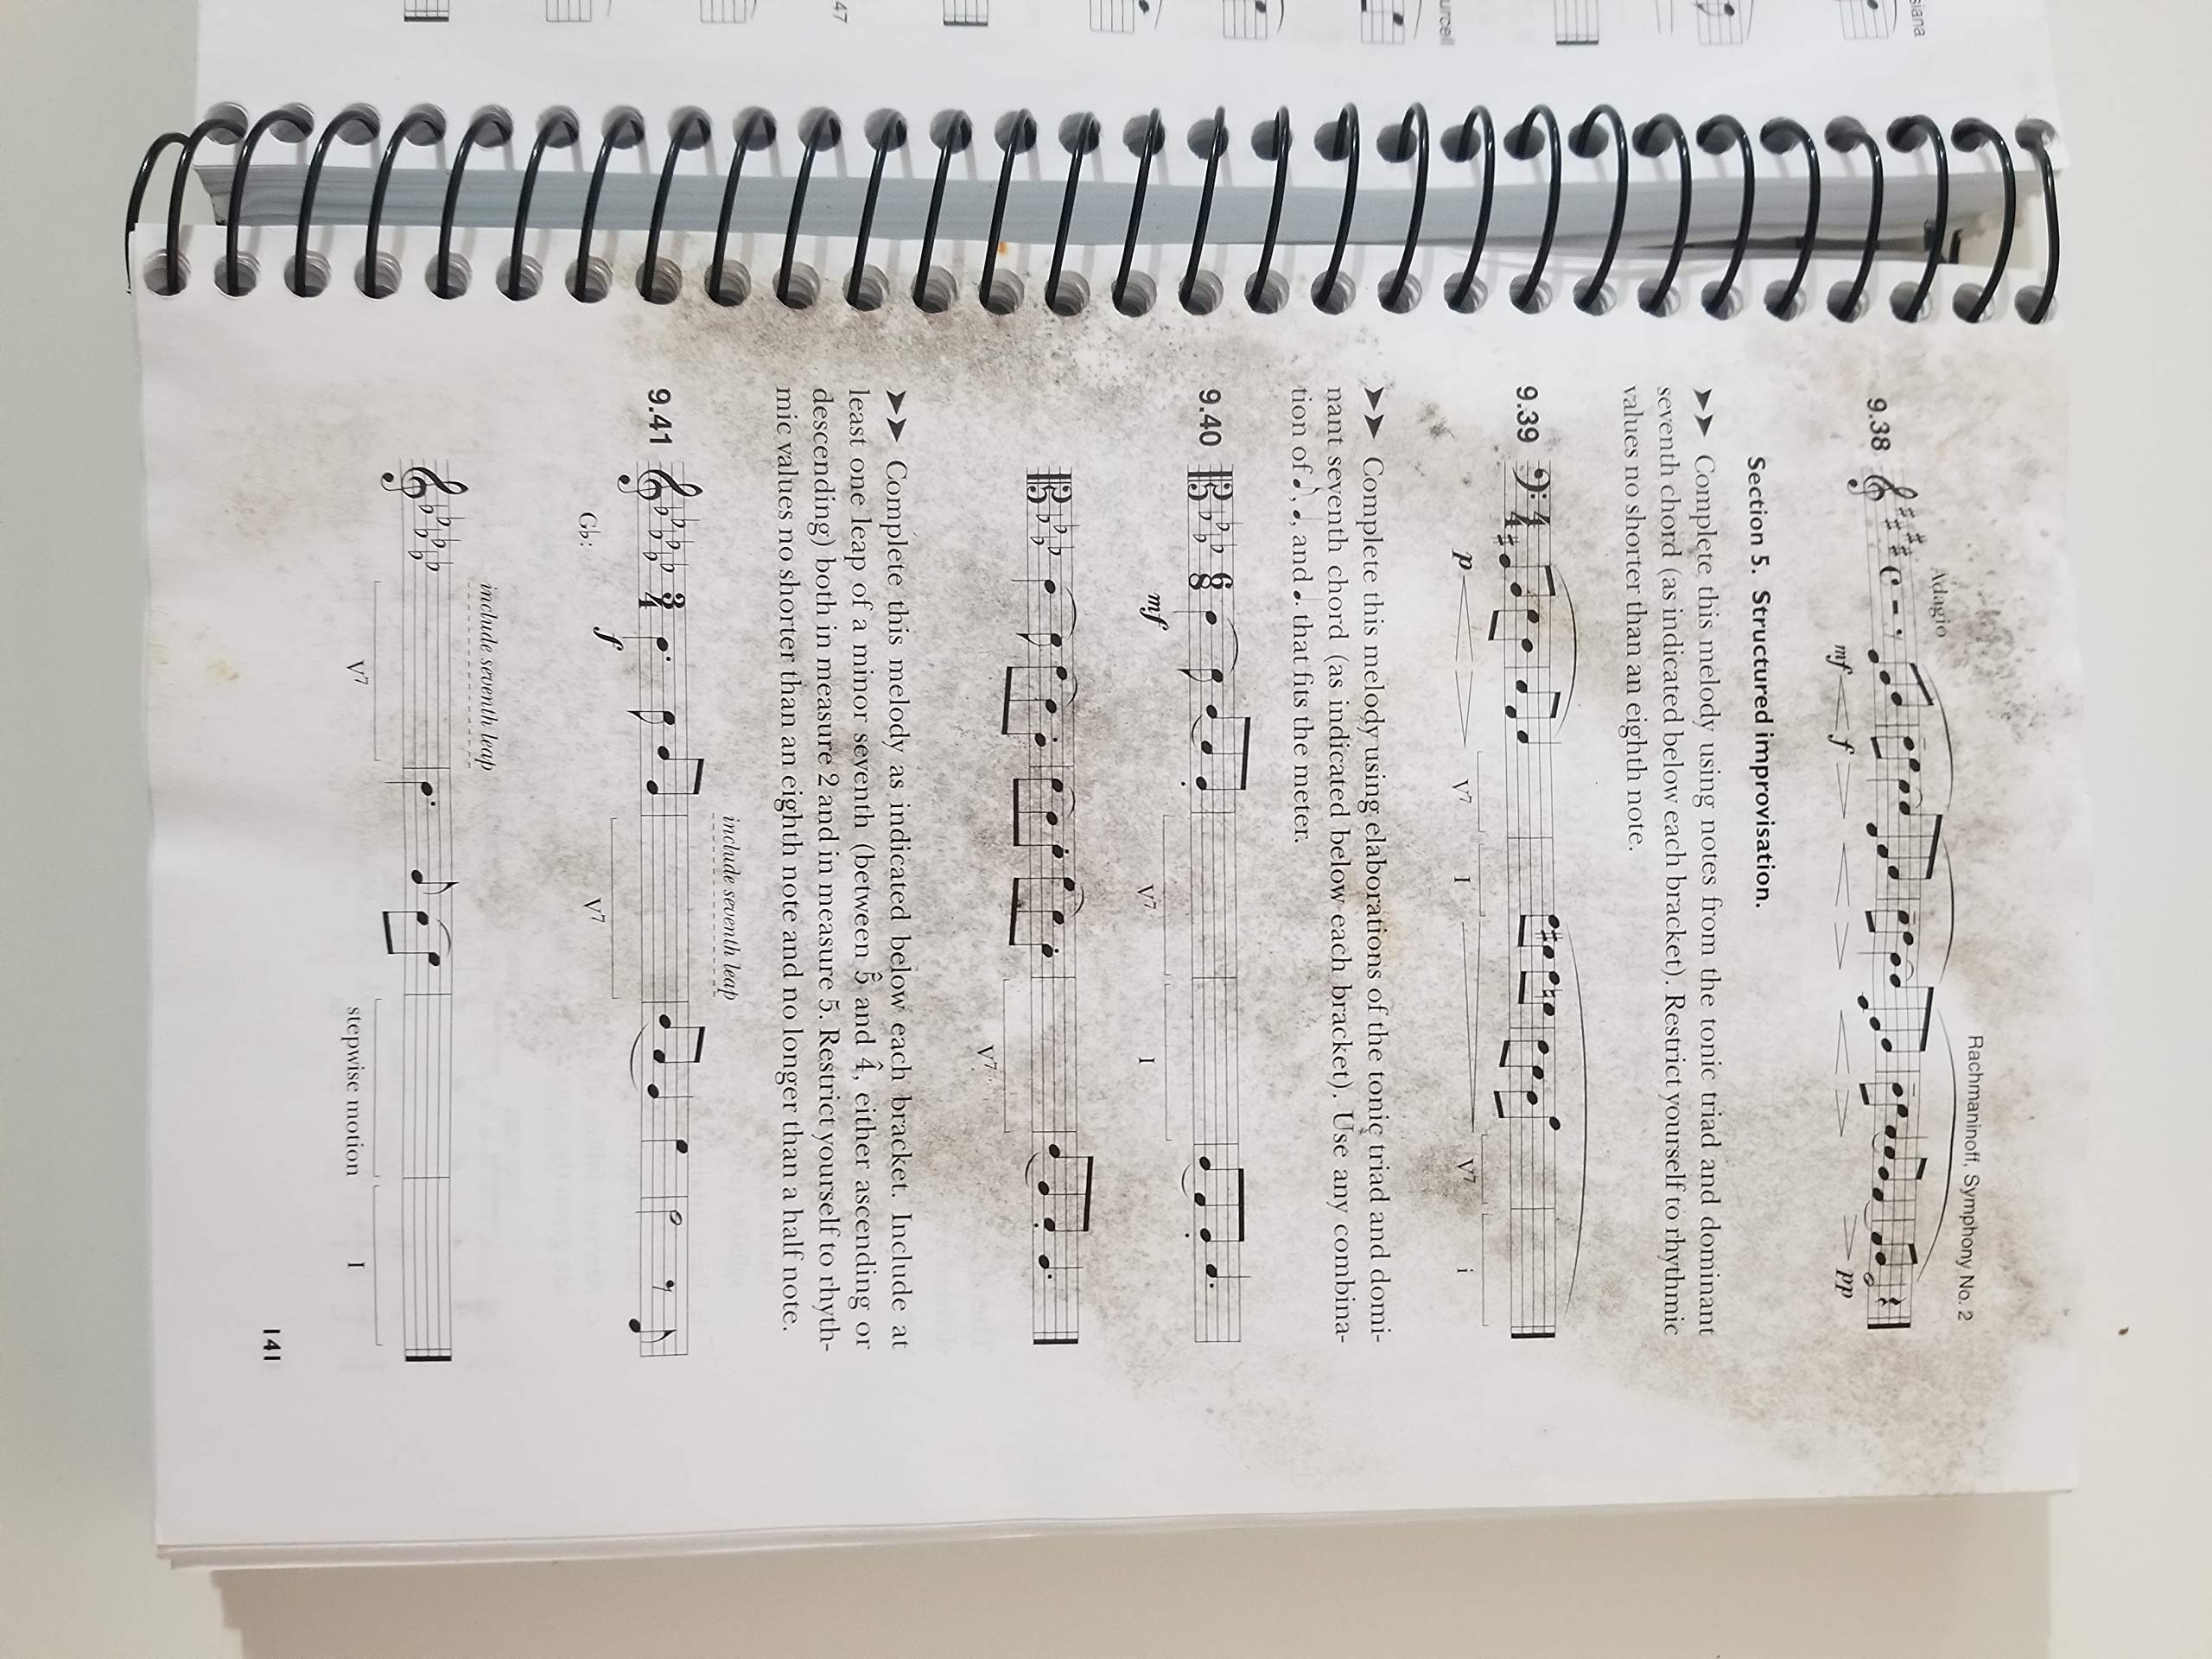 siana
urcell
47
Rachmaninoff, Symphony No. 2
Adagio
9.38
mf f pp
Section 5. Structured improvisation.
➤➤ Complete this melody using notes from the tonic triad and dominant
seventh chord (as indicated below each bracket). Restrict yourself to rhythmic
values no shorter than an eighth note.
9.39
4
4
p V7 I V7 i
➤➤ Complete this melody using elaborations of the tonic triad and domi-
nant seventh chord (as indicated below each bracket). Use any combina-
tion of ♪, ♩, and ♩. that fits the meter.
9.40
6
8
mf V7 I
V7
➤➤ Complete this melody as indicated below each bracket. Include at
least one leap of a minor seventh (between 5̂ and 4̂, either ascending or
descending) both in measure 2 and in measure 5. Restrict yourself to rhyth-
mic values no shorter than an eighth note and no longer than a half note.
include seventh leap
9.41
3
4
f
G♭: V7
include seventh leap
V7 stepwise motion I
141